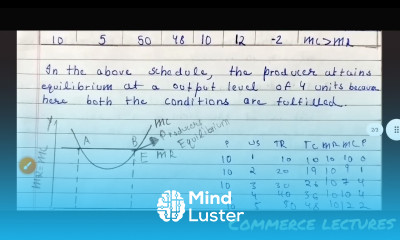 10 5 50 48 10 12 -2 MC>MR
In the above schedule, the producer attains
equilibrium at a output level of 4 units because
here both the conditions are fulfilled.
Y
MC
Producers
Equilibrium
A B
E MR
P US TR TC MR MC P
10 1 10 10 10 10 0
10 2 20 19 10 9 1
10 3 30 26 10 7 4
Mind
Luster
COMMERCE LECTURES